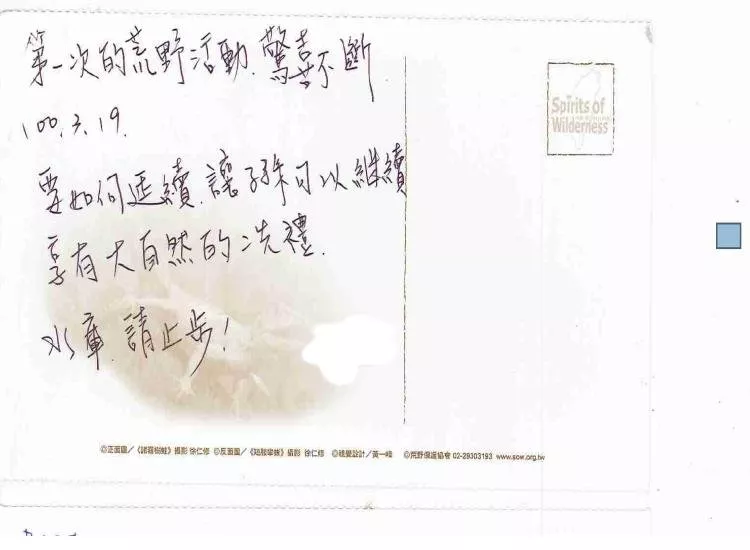 第一次的荒野活動.驚喜不斷
100.3.19.
要如何延續.讓子孫可以継續
享有大自然的洗禮.
水庫.請止步!
Spirits of
Wilderness
◎正面圖／《諸羅樹蛙》攝影 徐仁修 ◎反面圖／《短腳寧蛛》攝影 徐仁修 ◎視覺設計／黃一峰 ◎荒野保護協會 02-29303193 www.sow.org.tw